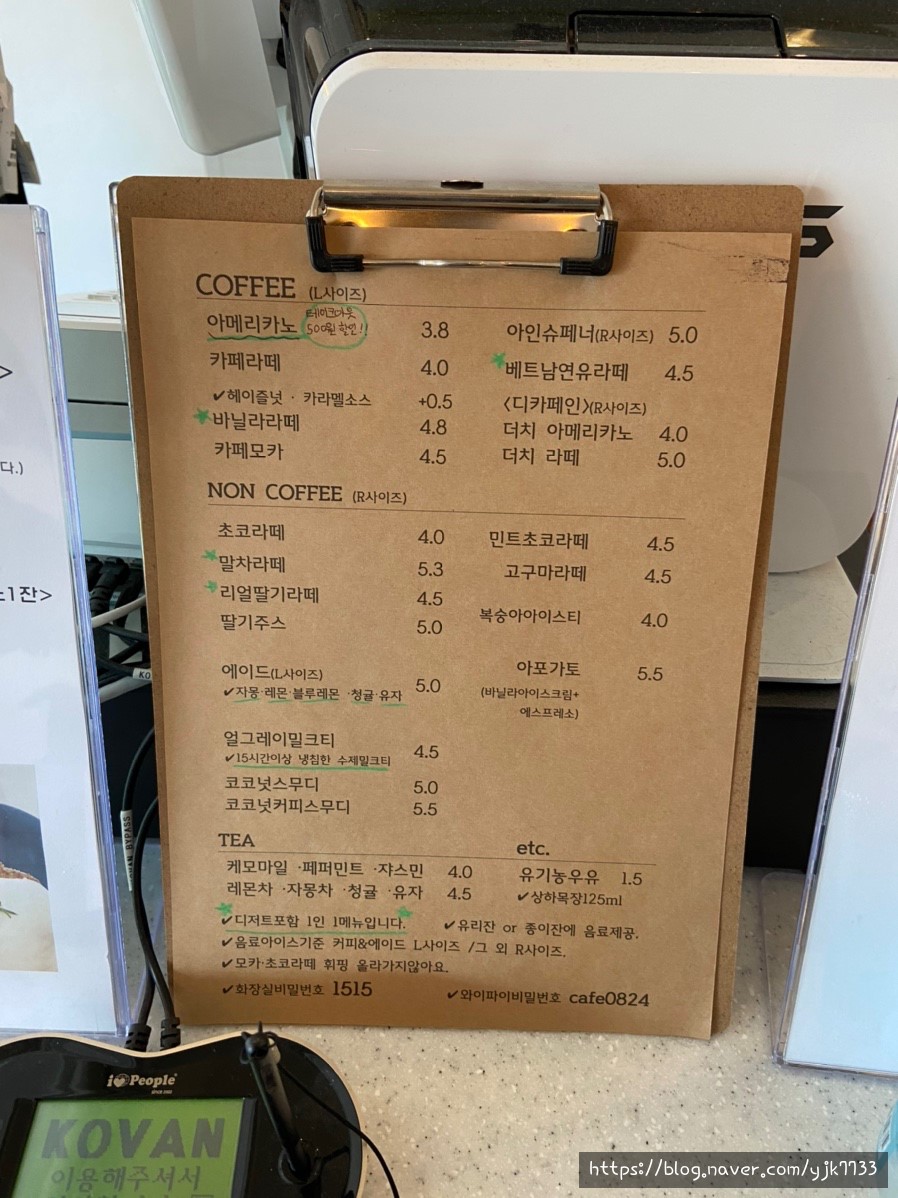 COFFEE (L사이즈)
아메리카노 테이크아웃 500원 할인!! 3.8
카페라떼 4.0
✔헤이즐넛 · 카라멜소스 +0.5
바닐라라떼 4.8
카페모카 4.5
아인슈페너(R사이즈) 5.0
베트남연유라떼 4.5
<디카페인>(R사이즈)
더치 아메리카노 4.0
더치 라떼 5.0
NON COFFEE (R사이즈)
초코라떼 4.0
말차라떼 5.3
리얼딸기라떼 4.5
딸기주스 5.0
민트초코라떼 4.5
고구마라떼 4.5
복숭아아이스티 4.0
에이드(L사이즈) 5.0
✔자몽·레몬·블루레몬 ·청귤·유자
아포가토 5.5
(바닐라아이스크림+
에스프레소)
얼그레이밀크티 4.5
✔15시간이상 냉침한 수제밀크티
코코넛스무디 5.0
코코넛커피스무디 5.5
TEA
케모마일 ·페퍼민트 ·쟈스민 4.0
레몬차 ·자몽차 ·청귤 ·유자 4.5
etc.
유기농우유 1.5
✔상하목장125ml
✔디저트포함 1인 1메뉴입니다. ✔유리잔 or 종이잔에 음료제공.
✔음료아이스기준 커피&에이드 L사이즈 /그 외 R사이즈.
✔모카·초코라떼 휘핑 올라가지않아요.
✔화장실비밀번호 1515 ✔와이파이비밀번호 cafe0824
다.)
1잔>
BYPASS
i People
KOVAN
이용해주셔서
https://blog.naver.com/yjk7733